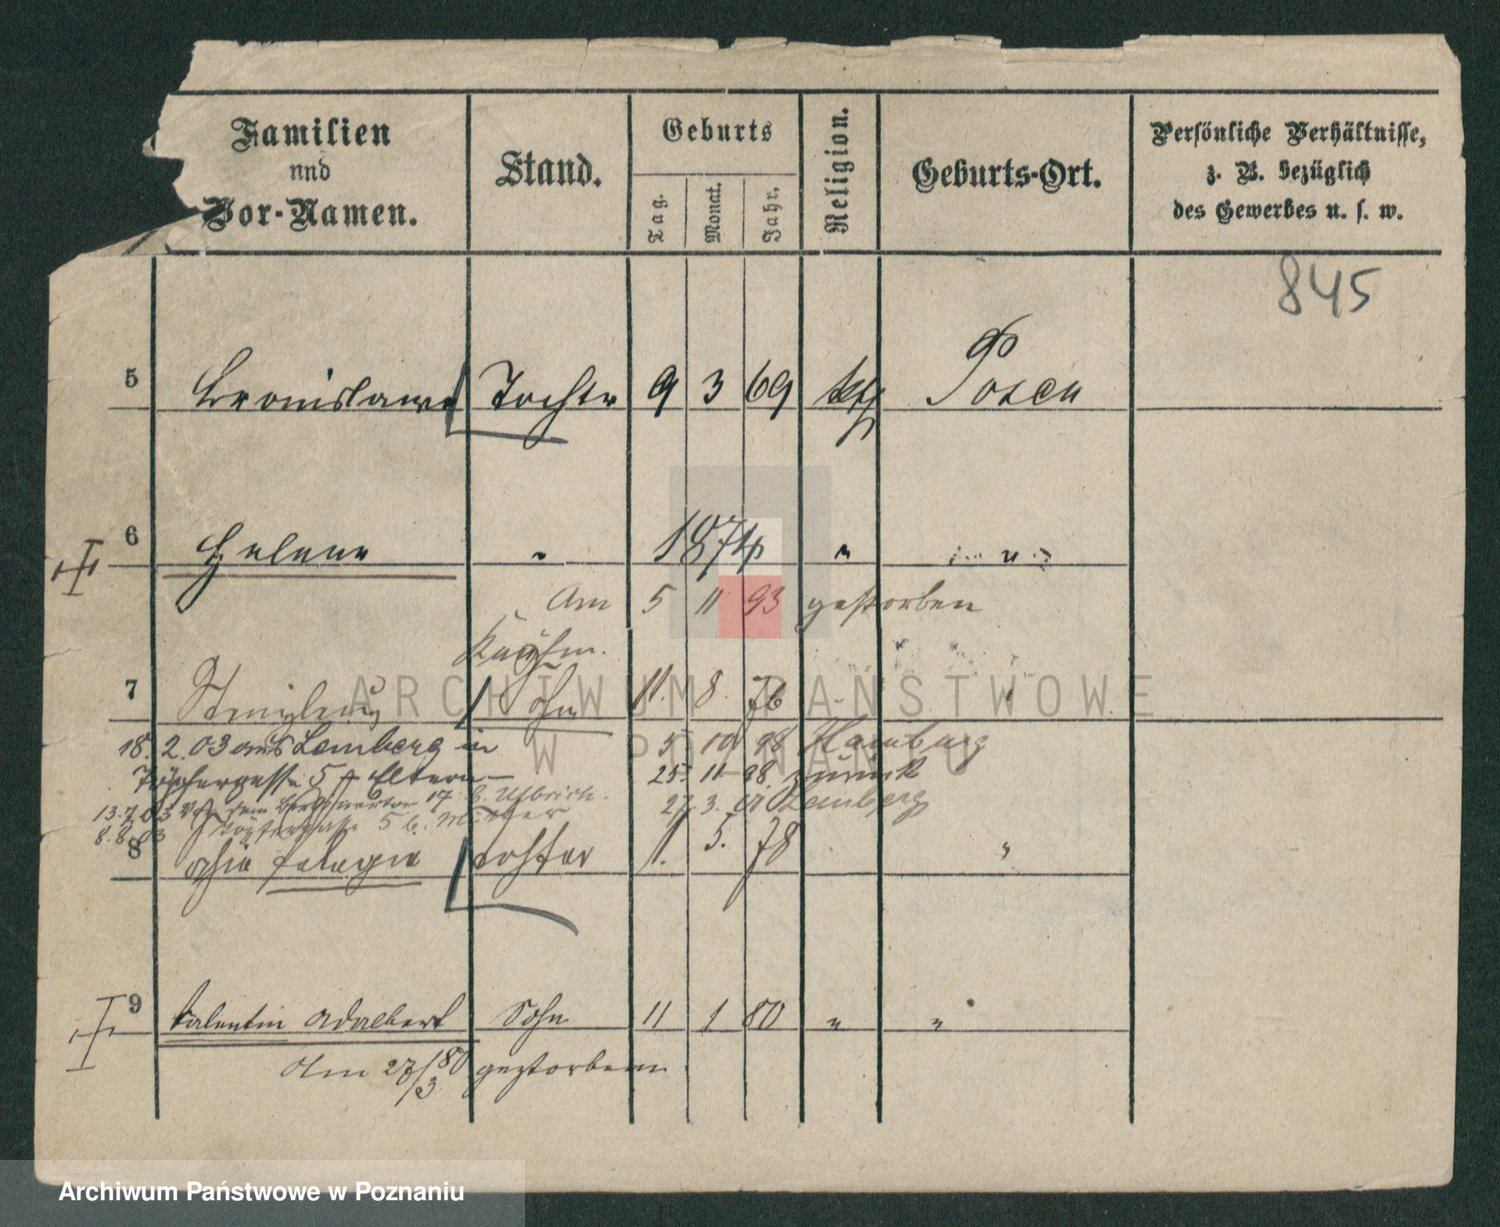 Familien
und
Vor-Namen.
Stand.
Geburts
Tag.
Monat.
Jahr.
Religion.
Geburts-Ort.
Persönliche Verhältnisse,
z. B. bezüglich
des Gewerbes u. s. w.
845
5 Bronislawa Tochter 9 3 69 kth Posen
6 Helene " 1874 " "
Am 5 11 93 gestorben
Kaufm.
7 Sohn 11. 8. 76 "
18. 2. 03 aus Lemberg in 5 10 98 Hamburg
Töpfergasse 5 Eltern 25. 11 98 zurück
13.7.03 17 b. Ulbrich. 27. 3. 01 Lemberg
8.8.03 Töpfergasse 5 b. Mutter
8 Pelagia Tochter 1. 5. 78 "
9 Valentin Adalbert Sohn 11 1 80 " "
Am 27/3 80 gestorben
ARCHIWUM PAŃSTWOWE
W POZNANIU
Archiwum Państwowe w Poznaniu